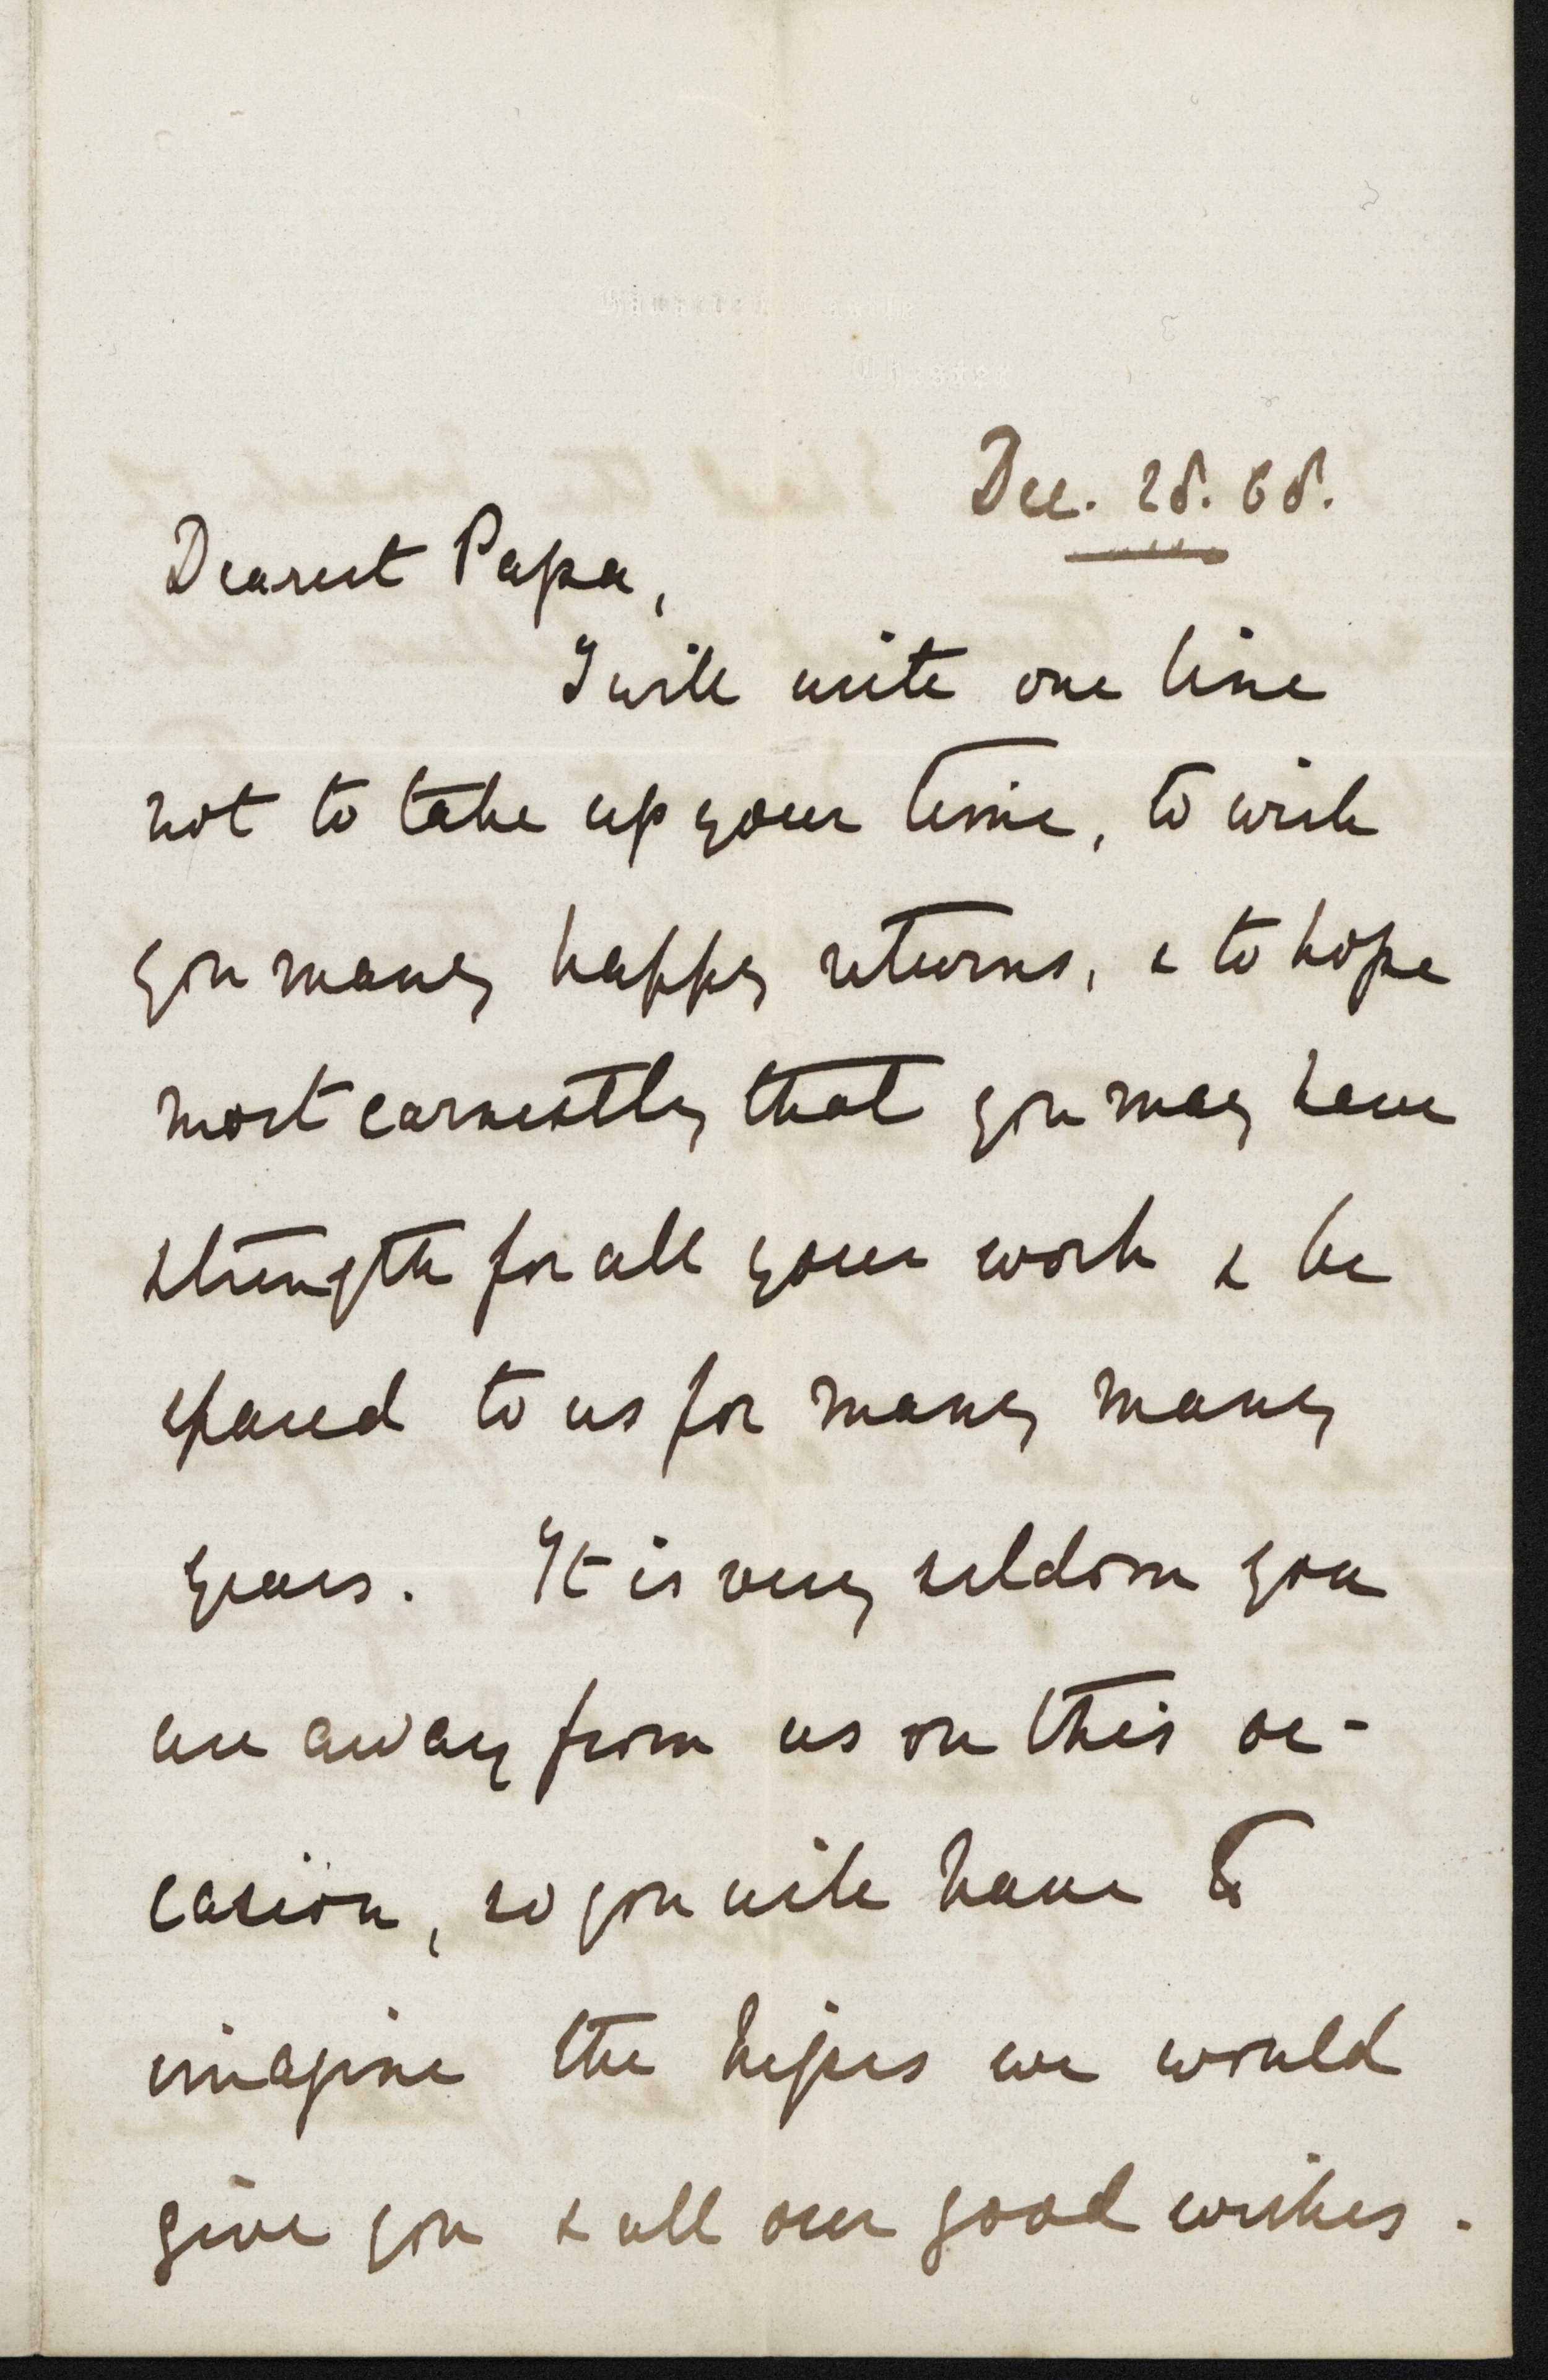 Hawarden Castle
Chester
Dec. 28. 68.
Dearest Papa,
I will write one line
not to take up your time, to wish
you many happy returns, & to hope
most earnestly that you may have
strength for all your work & be
spared to us for many many
years. It is very seldom you
are away from us on this oc-
casion, so you will have to
imagine the kisses we would
give you & all our good wishes.